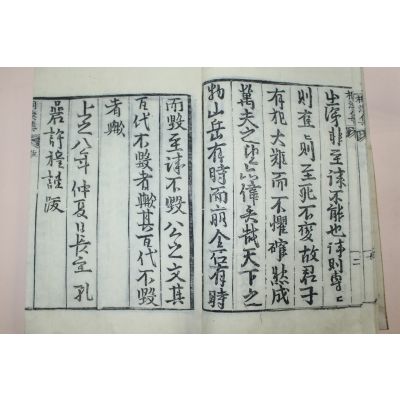 非至誠不能也誠則專〻
則直〻則至死不變故君子
有犯大難而不懼確然成
萬夫之偉矣哉天下之
物山岳有時而崩金石有時
而毀至誠不毀公之文其
百代不毀者歟其百代不毀
者歟
上之八年仲夏日長至孔
巖許穆謹跋
二